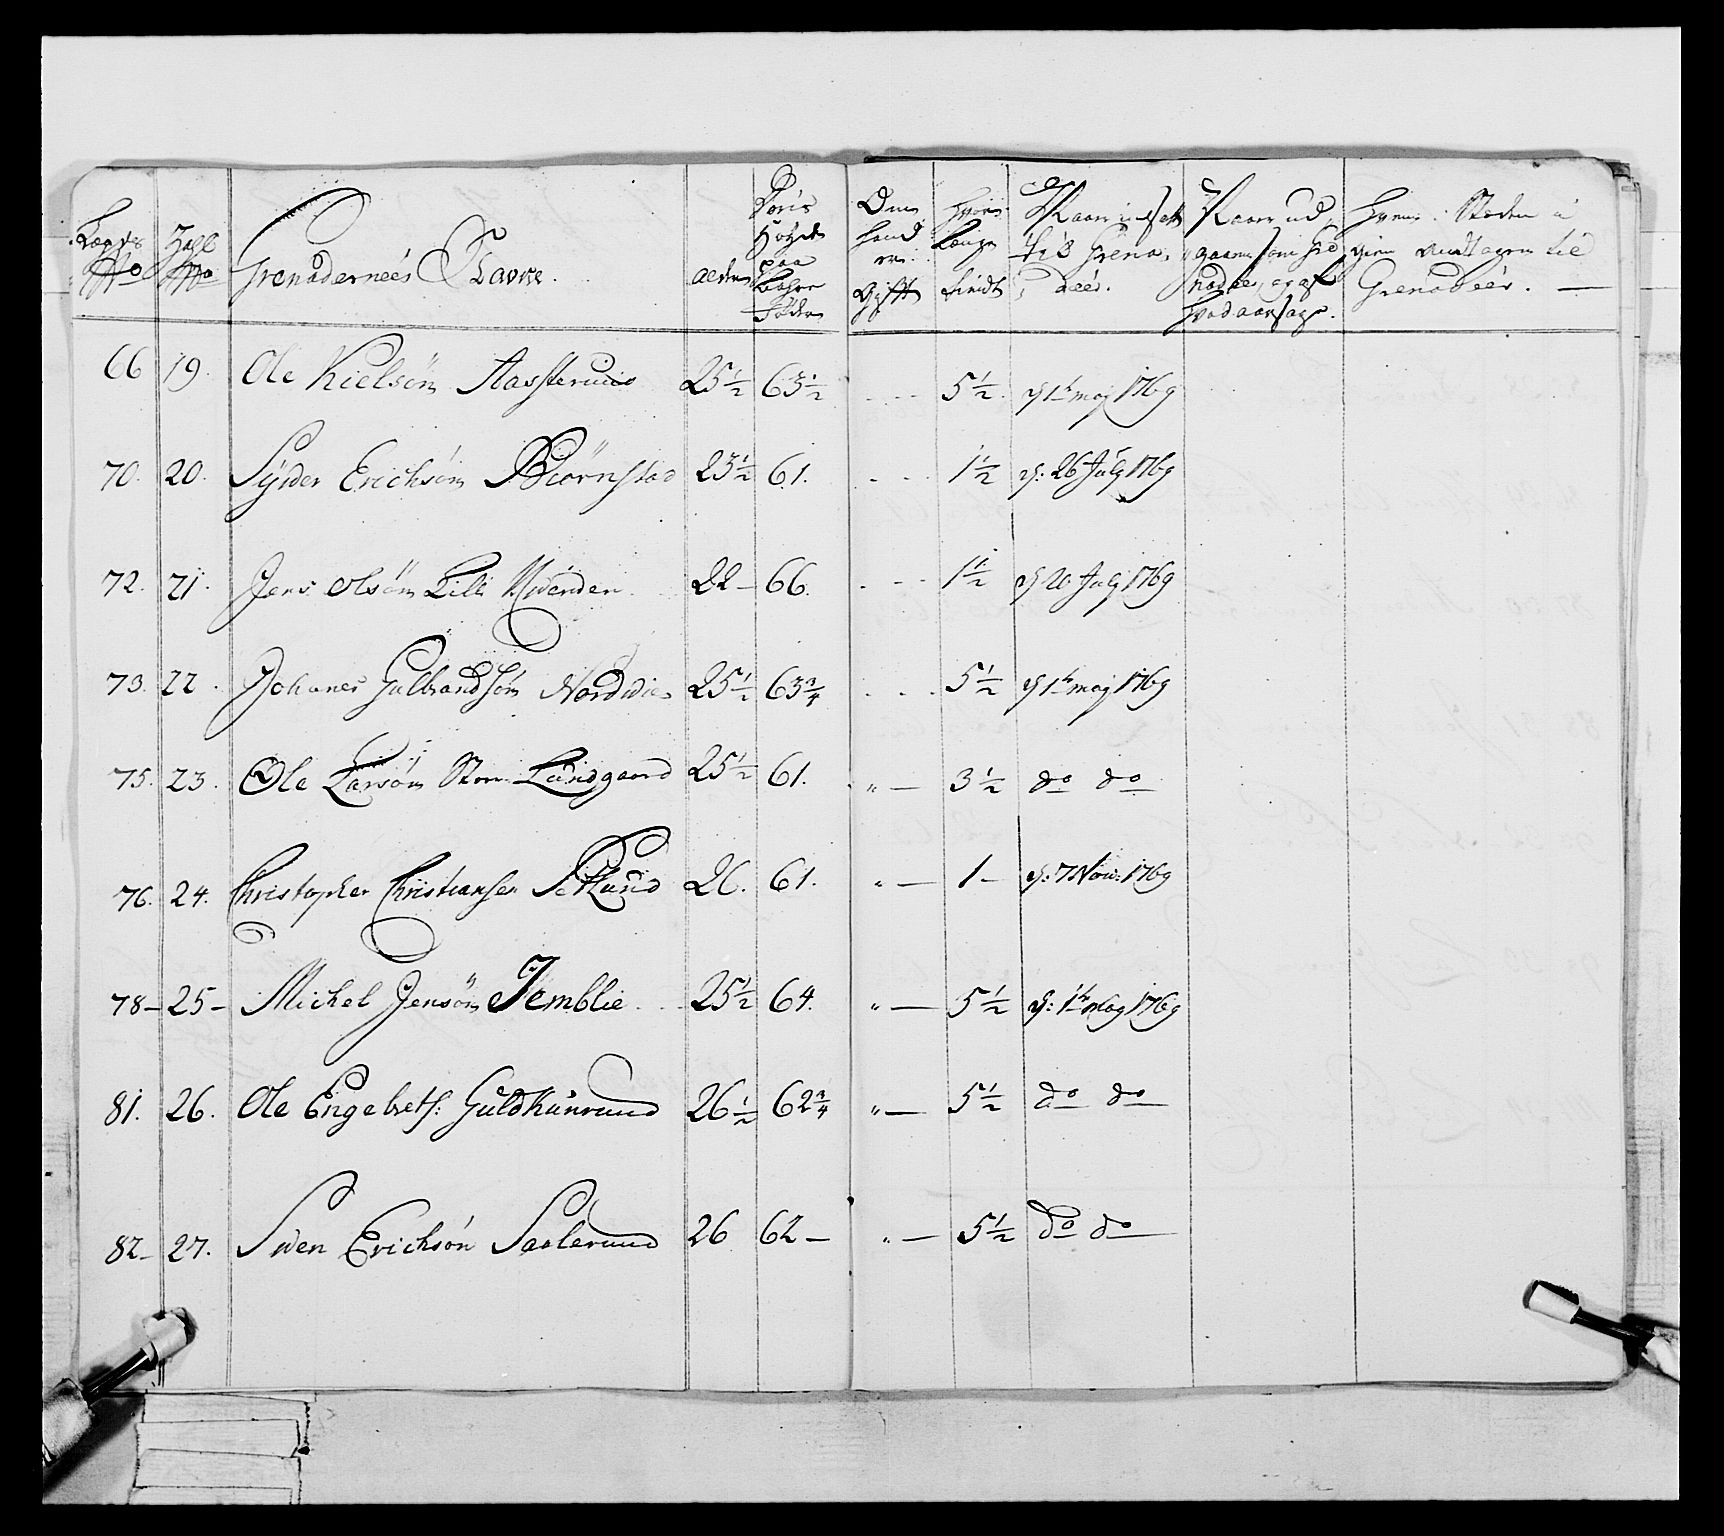 Lægds No Tall No Grenaderneés Navne. Alder Deris Høyde paa bahre Födder Om hand er Gifft hvor Længe tient Naar indsatt til Grena, deér. Naar ud, gaaen som Gre nadeer, og af hvad aarsage. hvem i Steden igien andtagen til Grenadeér. —
66 19. Ole Kielsön 25½ 63½ . . . 5½ d 1te maj 1769
70. 20. Syver Erichsön Biörnstad 23½ 61. . . . 1½ d: 26 July 1769
72. 21. Jens Olsön Lille 22 – 66. . . . 1½ d 20 July 1769
73. 22. Johanes Gulbrandsön 25½ 63¾ . . . 5½ d 1te maj 1769
75. 23. Ole Larsön Store Lundgaard 25½ 61. „ — 3½ do do
76. 24. Christopher Christiansen 26. 61. „ — 1 – d: 7 Nov: 1769
78 – 25 – Michel Jensön Jemblie 25½ 64. „ — 5½ d: 1te maj 1769
81. 26. Ole Engebrets: Guldkunrund 26½ 62¾ „ — 5½ do do
82 – 27. Swen Erichsön Saxlerund 26 62 – „ — 5½ do do